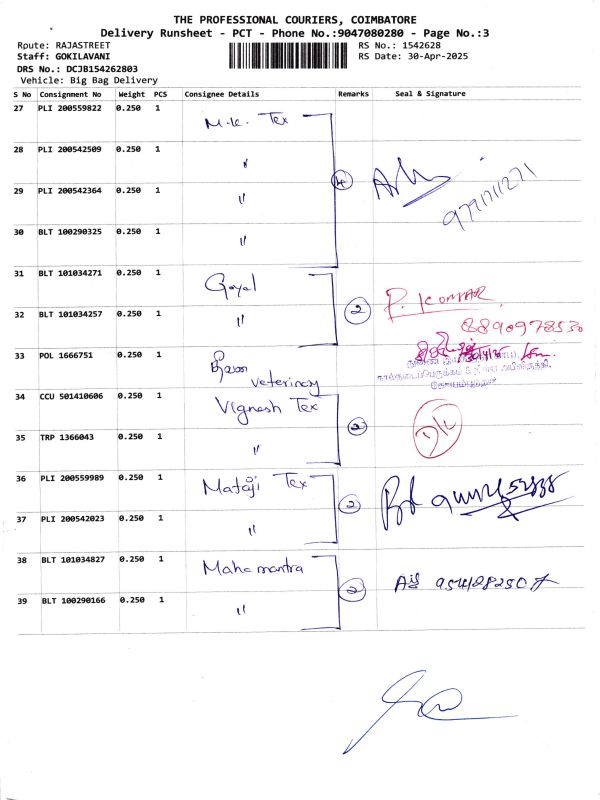 THE PROFESSIONAL COURIERS, COIMBATORE
Delivery Runsheet - PCT - Phone No.:9047080280 - Page No.:3
Route: RAJASTREET
RS No.: 1542628
Staff: GOKILAVANI
RS Date: 30-Apr-2025
DRS No.: DCJB154262803
Vehicle: Big Bag Delivery
S No Consignment No Weight PCS Consignee Details Remarks Seal & Signature
27 PLI 200559822 0.250 1 M.K. Tex
28 PLI 200542509 0.250 1 "
29 PLI 200542364 0.250 1 " 4
9791711271
30 BLT 100290325 0.250 1 "
31 BLT 101034271 0.250 1 Goyal
2 P. KUMAR
32 BLT 101034257 0.250 1 "
8890978530
33 POL 1666751 0.250 1
veterinary
34 CCU 501410606 0.250 1 Vignesh Tex
2
35 TRP 1366043 0.250 1 "
36 PLI 200559989 0.250 1 Mataji Tex
2
37 PLI 200542023 0.250 1 "
38 BLT 101034827 0.250 1 Mahamantra
2
39 BLT 100290166 0.250 1 "